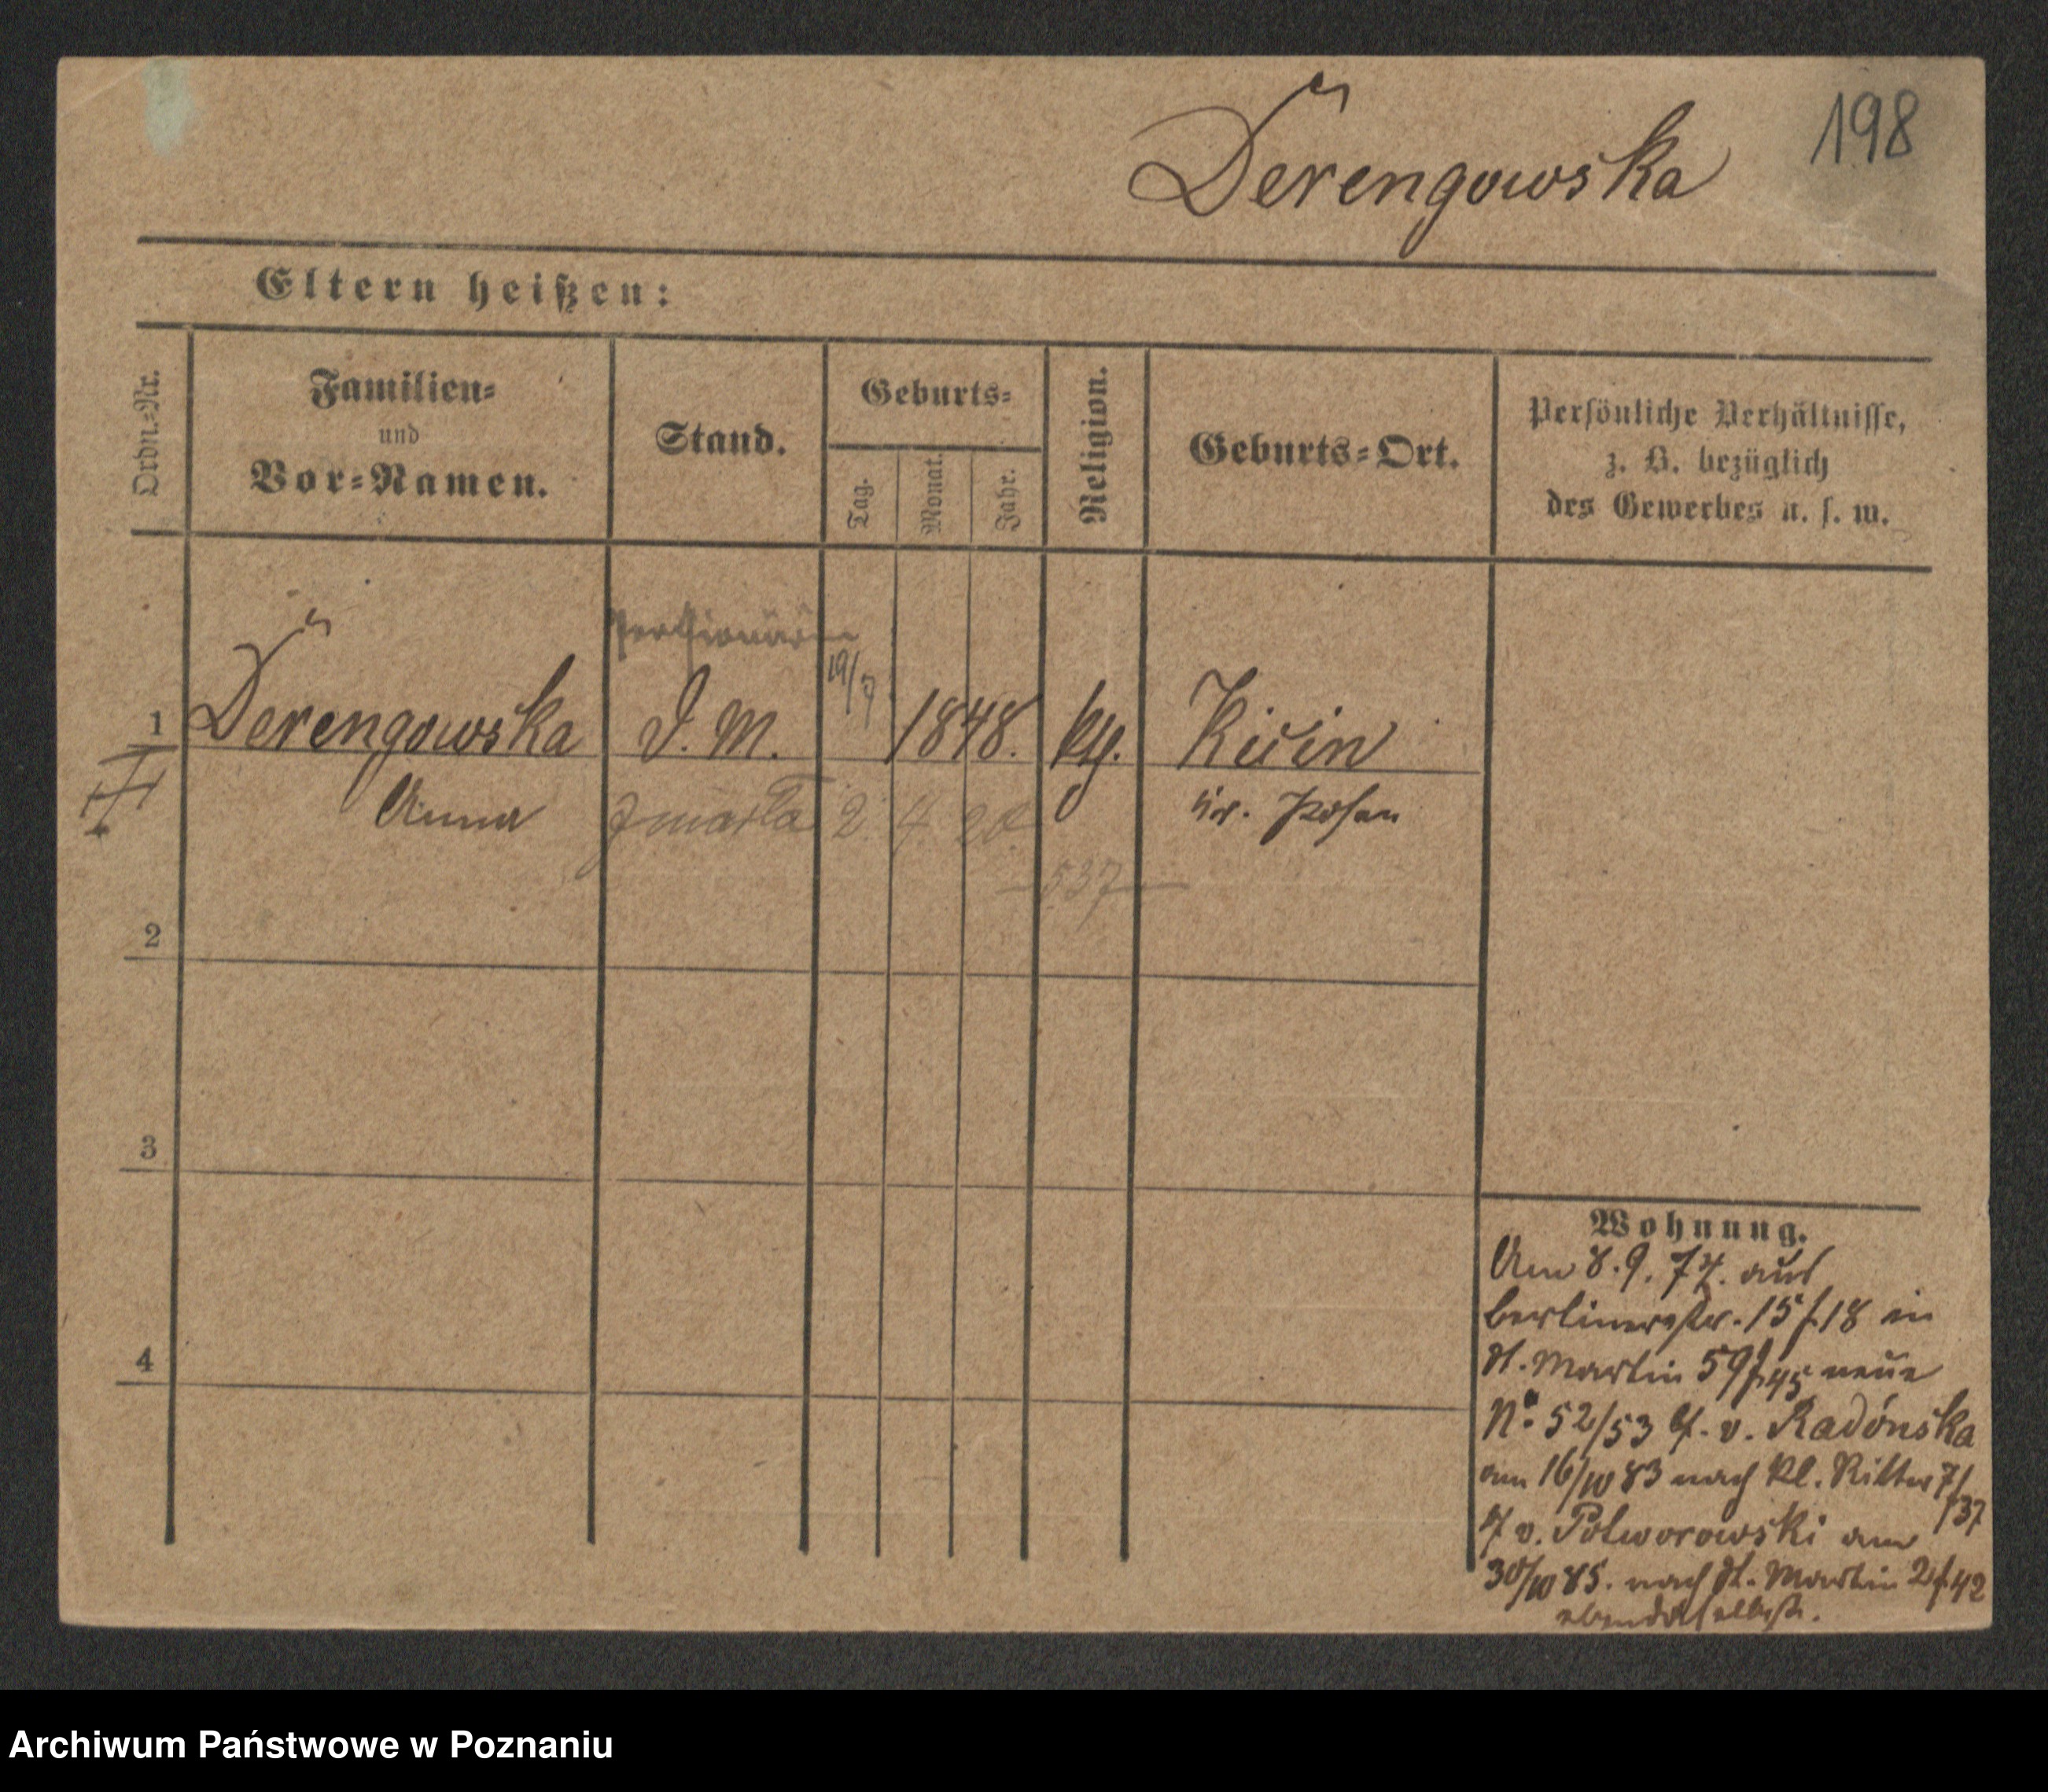 Derengowska
198
Eltern heißen:
Ordn.-Nr.
Familien-
und
Vor-Namen.
Stand.
Geburts-
Tag.
Monat.
Jahr.
Religion.
Geburts-Ort.
Persönliche Verhältnisse,
z. B. bezüglich
des Gewerbes u. s. w.
19/7
1 Derengowska D. M. 1848. kth. Kicin
Anna zmarła 2. 4. 20. Kr. Posen
537
2
3
4
Wohnung.
Am 8.9.74. aus
Berlinerstr. 15 f. 18 in
St. Martin 59 f. 45 neue
No. 52/53 bei v. Radónska
am 16/10 83 nach kl. Ritter 7/
37
v. Potworowski am
30/10 85. nach St. Martin 2 f. 42
ebendaselbst.
Archiwum Państwowe w Poznaniu